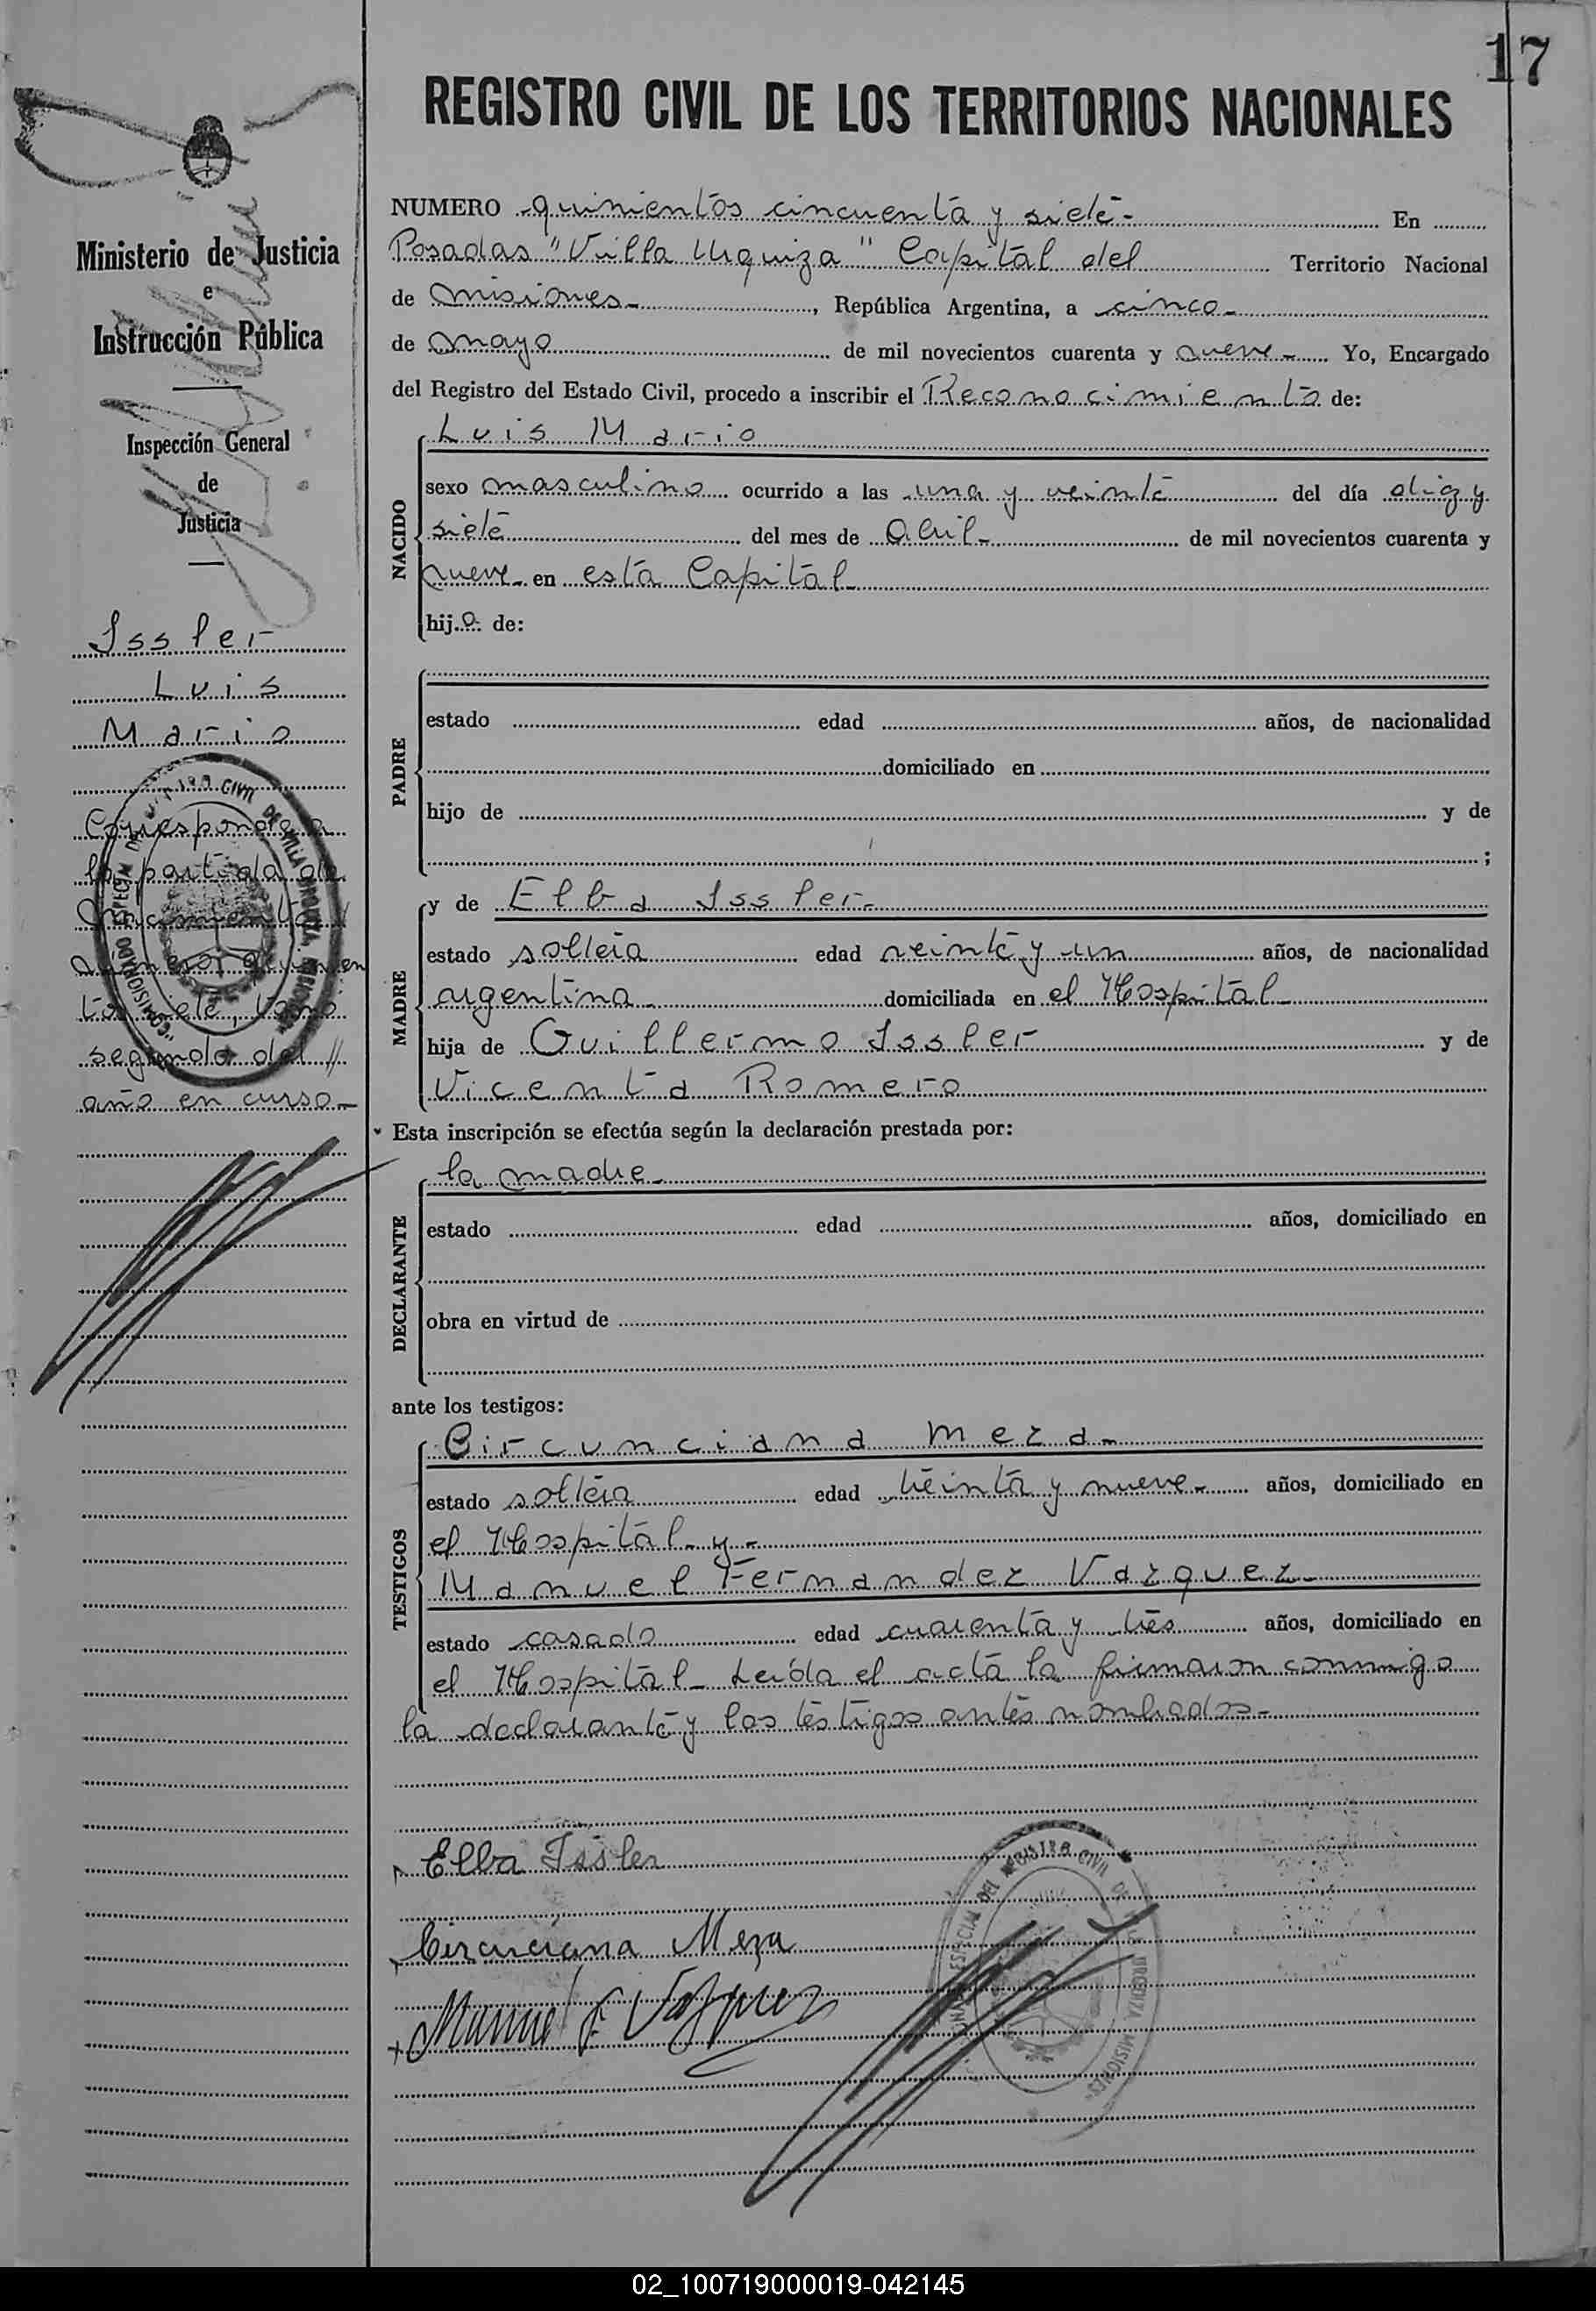 17
REGISTRO CIVIL DE LOS TERRITORIOS NACIONALES
Ministerio de Justicia
e
Instrucción Pública
Inspección General
de
Justicia
Issler
Luis
Mario
Corresponde a
la partida de
nacimiento
número quinien
tos siete, tomo
segundo del //
año en curso-
NUMERO -quinientos cincuenta y siete- En
Posadas "Villa Urquiza" Capital del Territorio Nacional
de Misiones-, República Argentina, a cinco-
de mayo de mil novecientos cuarenta y nueve- Yo, Encargado
del Registro del Estado Civil, procedo a inscribir el Reconocimiento de:
Luis Mario
NACIDO
sexo masculino ocurrido a las una y veinte del día diez y
siete del mes de Abril- de mil novecientos cuarenta y
nueve- en esta Capital
hijo de:
PADRE
estado edad años, de nacionalidad
domiciliado en
hijo de y de
;
MADRE
y de Elba Issler-
estado soltera edad veinte y un años, de nacionalidad
argentina- domiciliada en el Hospital-
hija de Guillermo Issler y de
Vicenta Romero
Esta inscripción se efectúa según la declaración prestada por:
la madre-
DECLARANTE
estado edad años, domiciliado en
obra en virtud de
ante los testigos:
TESTIGOS
Circunciana Meza-
estado soltera edad treinta y nueve- años, domiciliado en
el Hospital- y-
Manuel Fernandez Vazquez-
estado casado edad cuarenta y tres años, domiciliado en
el Hospital- Leída el acta la firmaron conmigo
la declarante y los testigos antes nombrados-
Elba Issler
Circunciana Meza
Manuel F. Vazquez
02_100719000019-042145